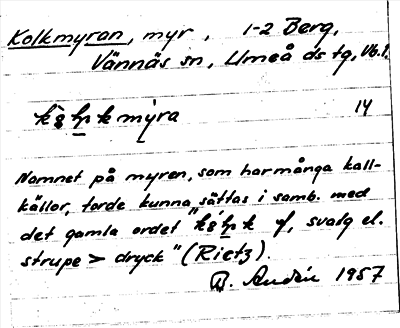 Kolkmyran, myr, 1-2 Berg,
Vännäs sn, Umeå ds tg, Vb.l.
myra 14
Namnet på myren, som har många kall-
källor, torde kunna sättas i samb. med
det gamla ordet " f, svalg el.
strupe > dryck" (Rietz).
1957